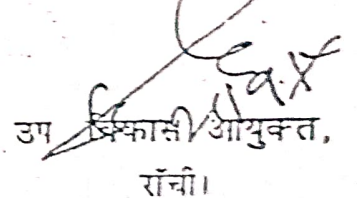 उप विकास आयुक्त,
राँची।